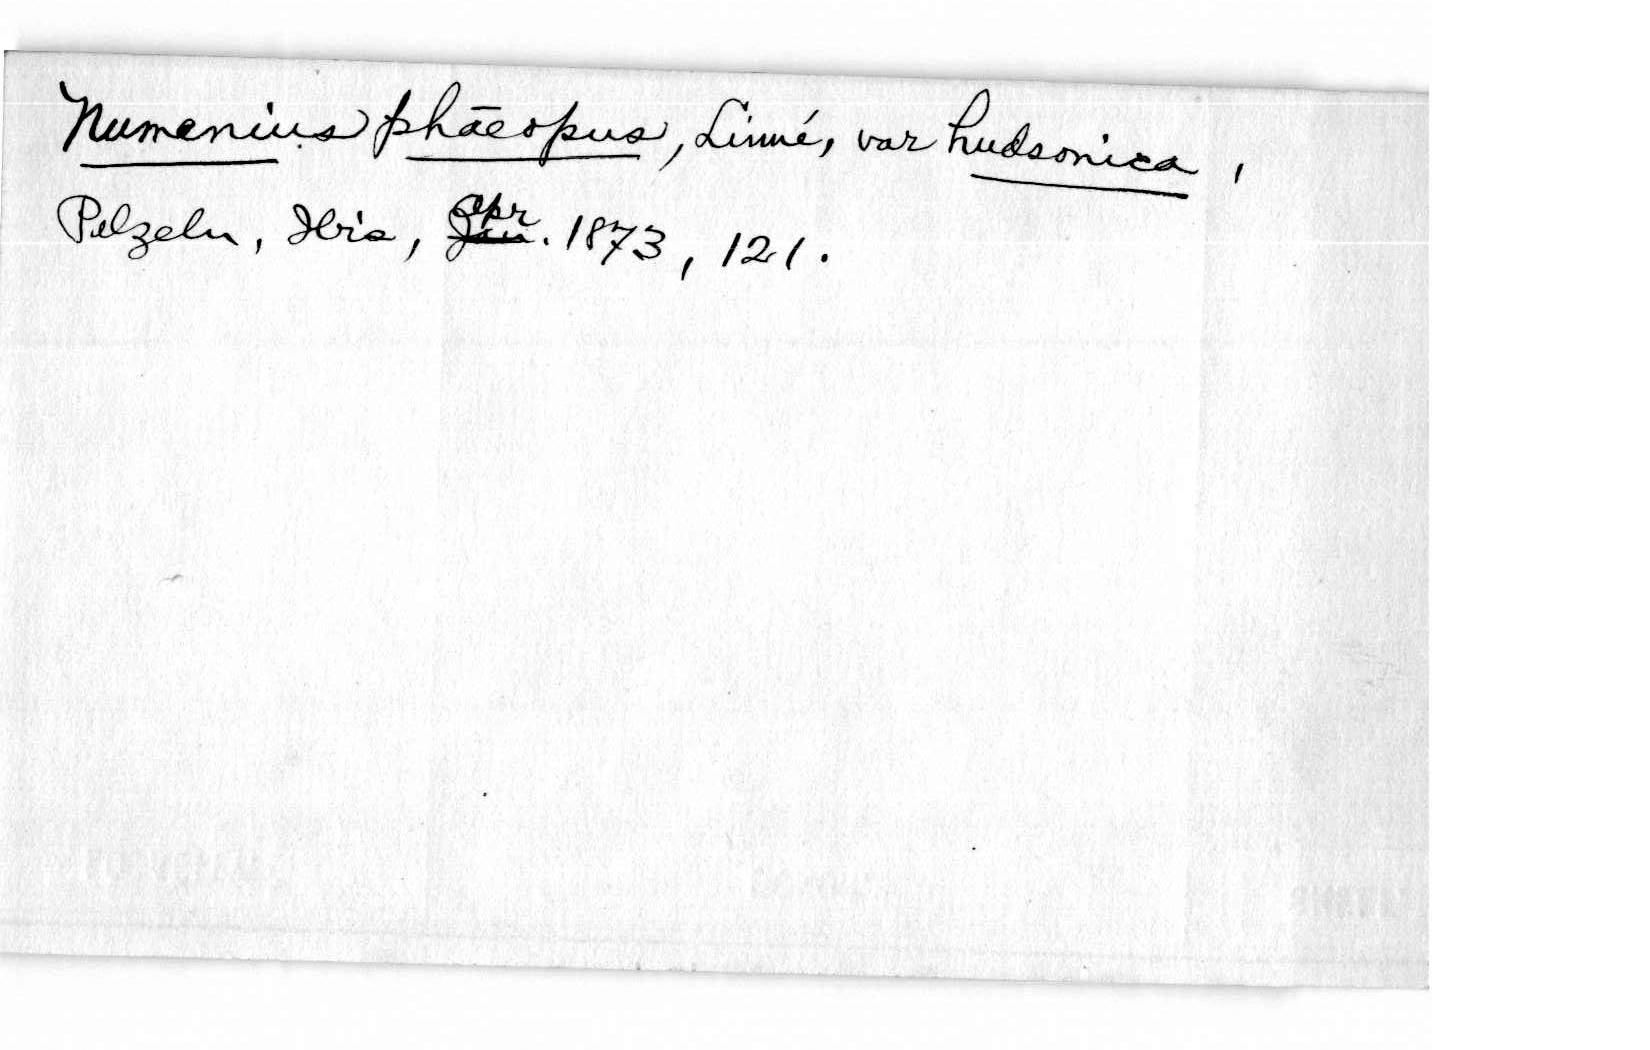 Numenius phāeopus, Linné, var hudsonica,
Pelzeln, Ibis, Jan. Apr. 1873, 121.